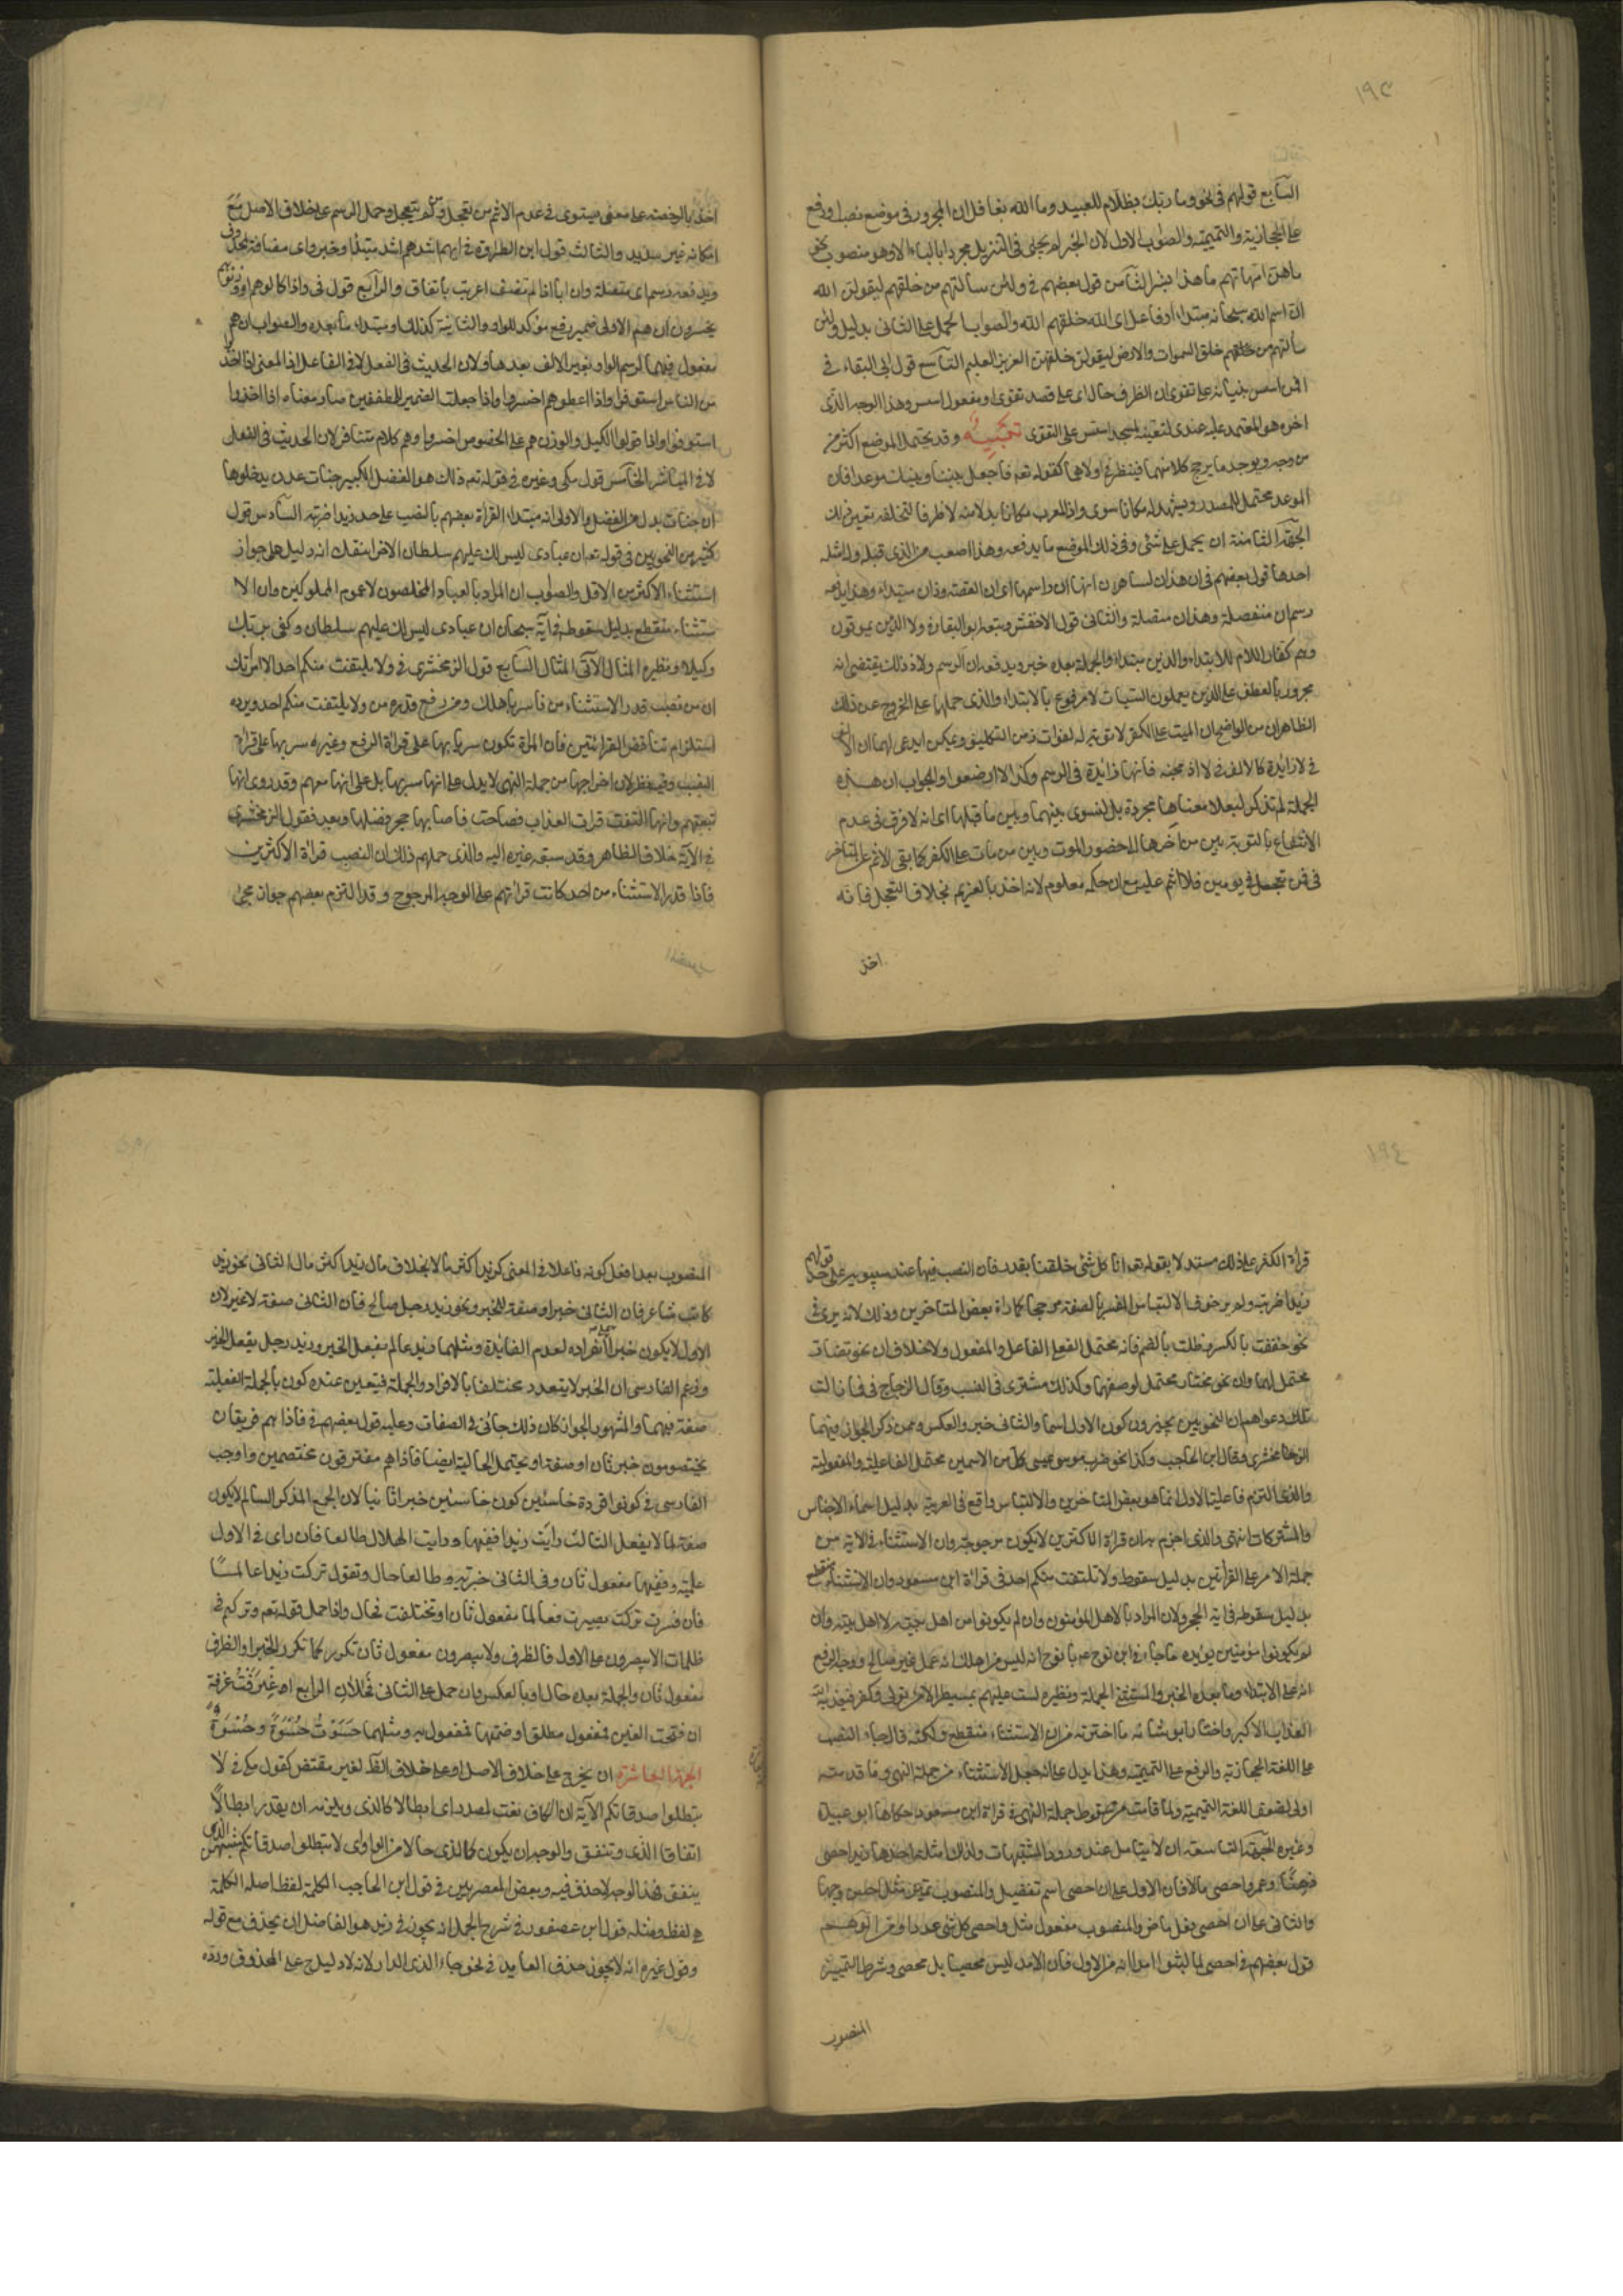 ١٩٣
السابع قولهم في نحو وما ربك بظلام للعبيد وما الله بغافل ان المجرور في موضع نصب او رفع
على الحجازية والتميمية والصواب الاول لان الخبر لم يجئ في التنزيل مجردا بالباء الا وهو منصوب نحو
ماهن امهاتهم ما هذا بشرا الثامن قول بعضهم في ولئن سألتهم من خلقهم ليقولن الله
ان اسم الله سبحانه مبتداء او فاعل اى الله خلقهم الله والصواب الحمل على الثانى بدليل ولئن
سألتهم من خلق السموات والارض ليقولن خلقهن العزيز العليم التاسع قول ابى البقاء في
افمن اسس بنيانه على تقوى ان الظرف حال اى على قصد تقوى او مفعول اسس وهذا الوجه الذى
اخره هو المعتمد عليه عندى لتعينه في لمسجد اسس على التقوى تنبيه وقد يحتمل الموضع اكثر من
من وجه ويوجد ما يرجح كلا منهما فينظر في اولاها كقوله تعم فاجعل بيننا وبينك موعدا فان
الموعد محتمل للمصدر ويشهد له مكانا سوى واذا اعرب مكانا بدلا منه لا ظرفا لتخلفه تعين ذلك
الجهة الثامنة ان يحمل على شئ وفي ذلك الموضع ما يدفعه وهذا اصعب من الذى قبله وله امثله
احدها قول بعضهم في ان هذان لساحران انها ان واسمها اى ان القصة وذان مبتداء وهذا يدفعه
رسم ان منفصلة وهذان متصلة والثانى قول الاخفش وتبعه ابو البقاء في ولا الذين يموتون
وهم كفار ان اللام للابتداء والذين مبتداء والجملة بعده خبره ويدفعه ان الرسم ولا وذلك يقتضى انه
مجرور بالعطف على الذين يعملون السيئات لا مرفوع بالابتداء والذى حملهما على الخروج عن ذلك
الظاهر ان من الواضح ان الميت على الكفر لا توبة له لفوات زمن التكليف ويمكن ان يدعى لهما ان الالف
في لا زائدة كالالف في لا اذبحنه فانها زائدة في الرسم وكذا لا اوضعوا والجواب ان هذه
الجملة لم تذكر ليعلا معناها مجردة بل لتسوى بينهما وبين ما قبلها اى انه لا فرق في عدم
الانتفاع بالتوبة بين من اخرها الى حضور الموت وبين من مات على الكفر كما بقى الاثم عن المتاخر
في فمن تعجل في يومين فلا اثم عليه مع ان حكمه معلوم لانه اخذ بالعزيم بخلاف المتعجل فانه
اخذ
اخذ بالرخصة على معنى يستوى في عدم الاثم من تعجل ومن لم يتعجل وحمل الرسم على خلاف الاصل مع
امكانه غير سديد والثالث قول ابن الطراوة في ايهم اشد هم اشد مبتدأ وخبر واى مضافة لمحذوف
ويدفعه رسم اى متصلة وان ايا اذا لم تضف اعربت باتفاق والرابع قول في واذا كالوهم او وزنوهم
يخسرون ان هم الاولى ضمير رفع مؤكد للواو والثانية كذلك او مبتداء ما بعده والصواب ان هم
مفعول فيهما لرسم الواو بغير الالف بعدها ولان الحديث في الفعل لا في الفاعل اذ المعنى اذا اخذوا
من الناس استوفوا واذا اعطوهم اخسروا واذا جعلت الضمير للمطففين صار معناه اذا اخذوا
استوفوا واذا تولوا الكيل والوزن هم على الخصوص اخسروا وهم كلام متنافر لان الحديث في الفعل
لا في المباشر الخامس قول مكى وغيره في قوله تعم ذلك هو الفضل الكبير جنات عدن يدخلونها
ان جنات بدل من الفضل والاولى انه مبتداء لقراءة بعضهم بالنصب على حد زيدا ضربته السادس قول
كثير من النحويين في قوله تعم ان عبادى ليس لك عليهم سلطان الا من اتبعك انه دليل على جواز
استثناء الاكثر من الاقل والصواب ان المراد بالعباد المخلصون لا عموم المملوكين وان الا
ستثناء منقطع بدليل سقوطه في آية سبحان ان عبادى ليس لك عليهم سلطان وكفى بربك
وكيلا ونظيره المثال الآتى المثال السابع قول الزمخشرى في ولا يلتفت منكم احد الا امرأتك
ان من نصب قدر الاستثناء من فاسر باهلك ومن رفع قدره من ولا يلتفت منكم احد ويرده
استلزام تناقض القرائتين فان المرأة تكون سرى بها على قراءة الرفع وغير مسرى بها على قراءة
النصب وفيه نظر لان اخراجها من جملة النهى لا يدل على انها سرى بها بل على انها معهم وقد روى انها
تبعتهم وانها التفتت فرات العذاب فصاحت فاصابها حجر فقتلها وبعد فقول الزمخشرى
في الآية خلاف الظاهر وقد سبقه غيره اليه والذى حملهم ذلك ان النصب قراءة الاكثرين
فاذا قدر الاستثناء من احد كانت قراءتهم على الوجه المرجوح وقد التزم بعضهم جواز مجئ
١٩٤
قراءة الكفر على ذلك مستدلا بقوله تعم انا كل شئ خلقناه بقدر فان النصب فيها عند سيبويه على حد قولهم
زيدا ضربته ولم ير خوف الالتباس المفسر بالصفة مرجحا كما راه بعض المتاخرين وذلك لانه يرى في
نحو خفت بالكسر وطلت بالضم فانه محتمل لفعلى الفاعل والمفعول ولا خلاف ان نحو تضار
محتمل لهما وان نحو مختار محتمل لوصفهما وكذلك مشترى في النسب وقال الزجاج في فما زالت
تلك دعواهم ان النحويين يجيزون كون الاول اسما والثانى خبر والعكس وممن ذكر الجواز فيهما
الزمخشرى وقال ابن الحاجب وكذا نحو ضرب موسى عيسى كل من الاسمين محتمل الفاعلية والمفعولية
والذى التزم فاعلية الاول انما هو بعض المتاخرين والالتباس واقع في العربية بدليل اسماء الاجناس
والمشتركات انتهى والذى اجزم به ان قراءة الاكثرين لا يكون مرجوحة وان الاستثناء في الاية من
جملة الامر على القرأتين بدليل سقوط ولا يلتفت منكم احد في قراءة ابن مسعود وان الاستثناء منقطع
بدليل سقوطه في آية الحجر ولان المراد بالاهل المؤمنون وان لم يكونوا من اهل بيته لا اهل بيته وان
لم يكونوا مؤمنين يؤيده ما جاء في ابن نوح عم يا نوح انه ليس من اهلك انه عمل غير صالح ووجه الرفع
انه على الابتداء وما بعده الخبر والمستثنى الجملة ونظيره لست عليهم بمسيطر الا من تولى وكفر فيعذبه الله
العذاب الاكبر واختار ابو شامه ما اخترته من ان الاستثناء منقطع ولكنه قال جاء النصب
على اللغة الحجازية والرفع على التميمية وهذا يدل على انه جعل الاستثناء من جملة النهى وما قدمته
اولى لضعف اللغة التميمية ولما قدمت من سقوط جملة النهى في قراءة ابن مسعود حكاها ابو عبيدة
وغيره الجهة التاسعة ان لا يتامل عند ورود المشتبهات ولذلك امثلة احدها زيد احصى
ذهنا وعمرو احصى مالا فان الاول على ان احصى اسم تفضيل والمنصوب تمييز مثل احسن وجها
والثانى على ان احصى فعل ماض والمنصوب مفعول مثل واحصى كل شئ عددا ومن الوهم
قول بعضهم في احصى لما لبثوا امدا انه من الاول فان الامد ليس محصيا بل محصى وشرط التمييز
المنصوب
المنصوب بعد افعل كونه فاعلا في المعنى كزيد اكثر مالا بخلاف مال زيد اكثر مال الثانى نحو زيد
كاتب شاعر فان الثانى خبر او صفة للخبر ونحو زيد رجل صالح فان الثانى صفة لا غير لان
الاول لا يكون خبرا على انفراده لعدم الفائدة ومثلهما زيد عالم يفعل الخير وزيد رجل يفعل الخير
وزعم الفارسى ان الخبر لا يتعدد مختلفا بالافراد والجملة فيتعين عنده كون بالجملة الفعلية
صفة فيهما والمشهور الجواز كما ان ذلك جائز في الصفات وعليه قول بعضهم في فاذا هم فريقان
يختصمون خبر ثان او صفة او يحتمل الحالية ايضا فاذا هم مفترقون مختصمين واوجب
الفارسى في كونوا قردة خاسئين كون خاسئين خبرا ثانيا لان الجمع المذكر السالم لا يكون
صفة لما لا يعقل الثالث رأيت زيدا فقيها ورايت الهلال طالعا فان راى في الاول
علمية وفقيها مفعول ثان وفى الثانى خبرية وطالعا حال وتقول تركت زيدا عالما
فان فسرت تركت بصيرت فعالما مفعول ثان او تخلفت فحال واذا حمل قوله تعم وتركهم في
ظلمات لا يبصرون على الاول فالظرف ولا يبصرون مفعول ثان تكرر كما تكرر الخبر او الظرف
مفعول ثان والجملة بعده حال او بالعكس وان حمل على الثانى فحالان الرابع اغترف غرفة
ان فتحت الغين فمفعول مطلق او ضممتها فمفعول به ومثلهما حسوت حسوة وحسوة
الجهة العاشرة ان يخرج على خلاف الاصل او على خلاف الظ لغير مقتض كقول مكى في لا
تبطلوا صدقاتكم الآية ان الكاف نعت لمصدر اى ابطالا كالذى ويلزمه ان يقدر ابطالا
اتفاق الذى وينفق والوجه ان يكون كالذى حالا من الواو اى لا تبطلوا صدقاتكم مشبهين الذى
ينفق فهذا الوجه لا حذف فيه وبعض المعصريين في قول ابن الحاجب الكلمة لفظ اصله الكلمة
هى لفظ ومثله قول ابن عصفور في شرح الجمل انه يجوز في زيد هو الفاضل ان يحذف مع قوله
وقول غيره انه لا يجوز حذف العايد في نحو جاء الذى الدار لانه لا دليل ح على المحذوف ورده